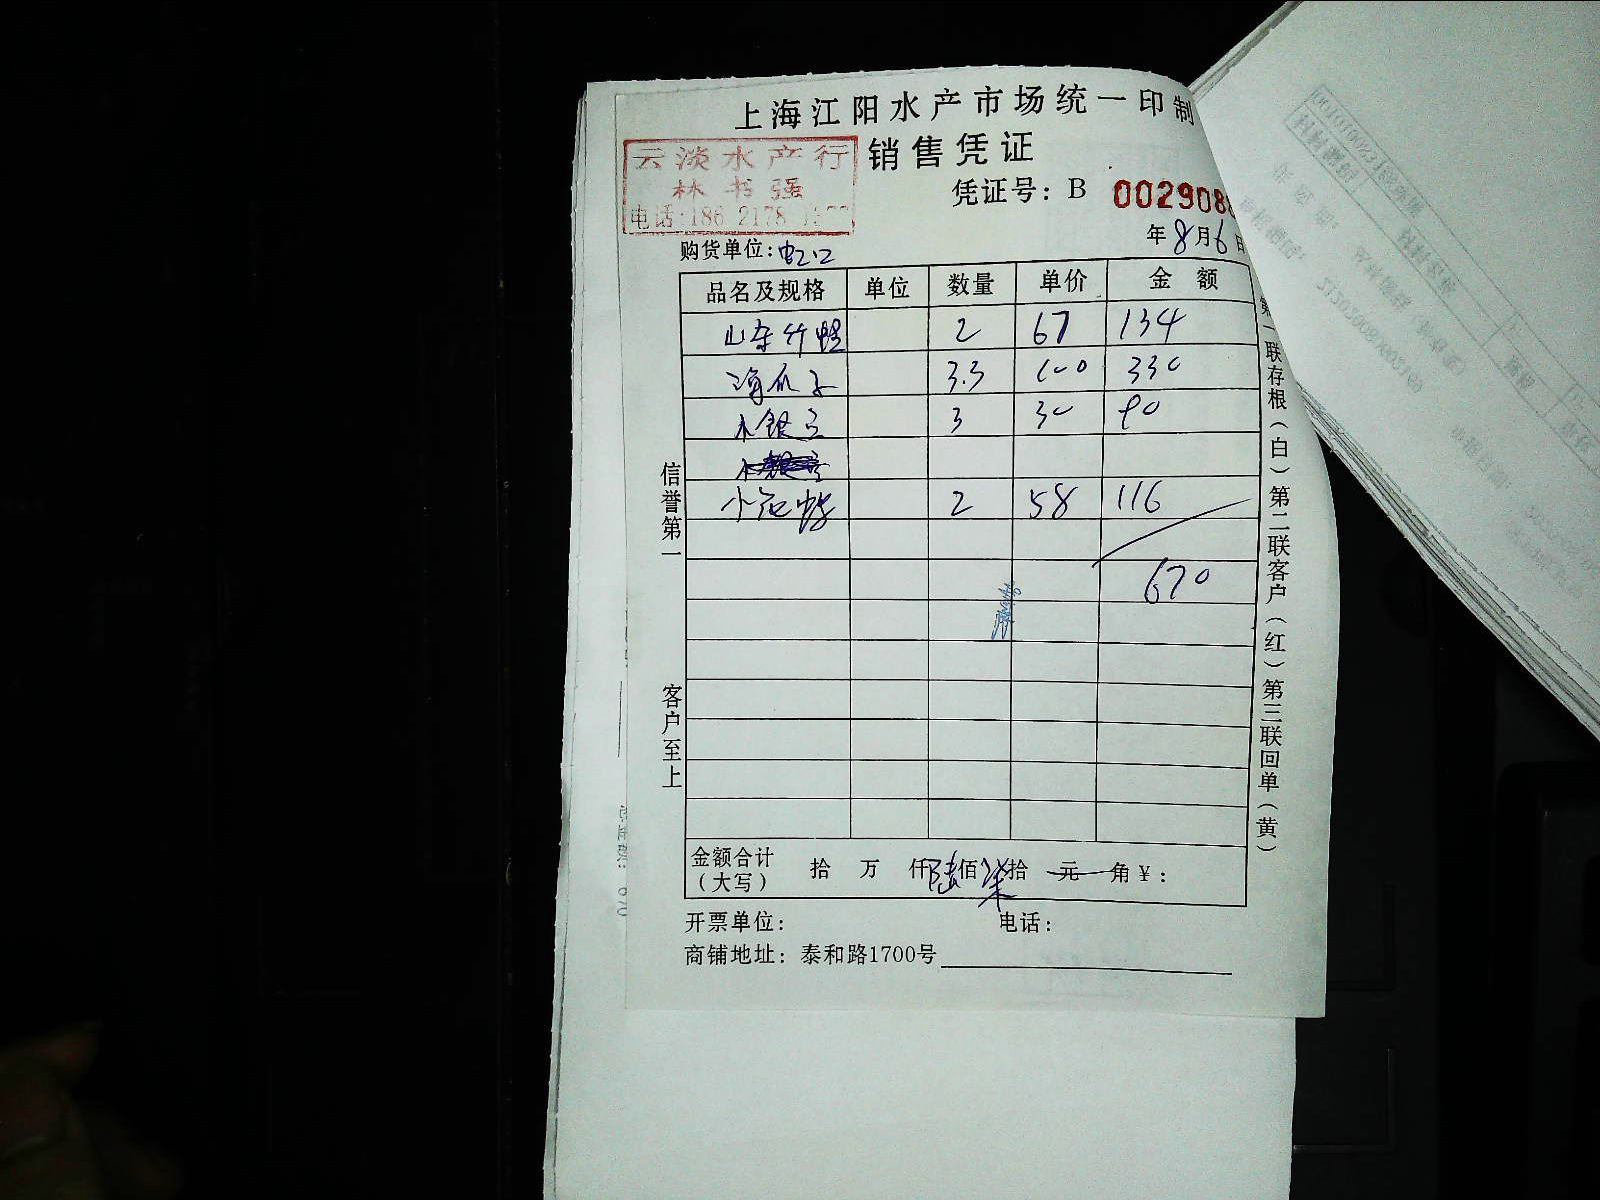 上海江阳水产市场统一印制
销售凭证
云淡水产行
林书强
电话:186 2178
凭证号：B 002908
年8月6日
购货单位:虹口
品名及规格 单位 数量 单价 金额
山东竹蛏 2 67 134
海瓜子 3.3 100 330
3 30 90
小花 2 58 116
670
金额合计（大写） 拾 万 仟陆佰柒拾 元 角￥：
开票单位： 电话：
商铺地址：泰和路1700号
信誉第一
客户至上
第一联存根（白）第二联客户（红）第三联回单（黄）